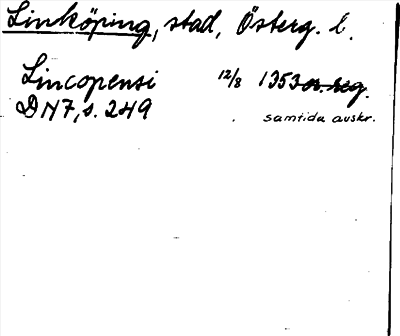 Linköping, stad, Österg. l.
Lincopensi 12/8 1353 or. reg.
DN7, s. 249 samtida avskr.